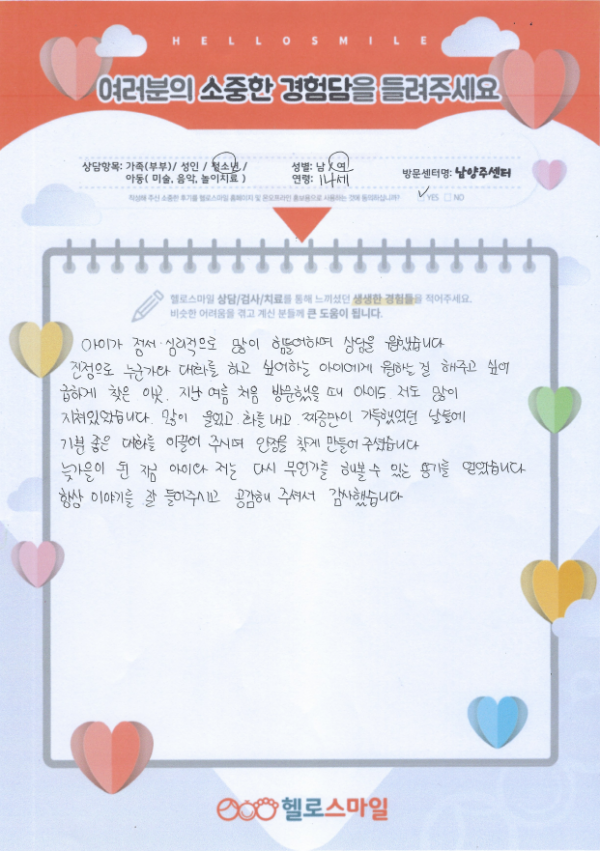 HELLOSMILE
여러분의 소중한 경험담을 들려주세요
상담항목: 가족(부부)/ 성인 / 청소년 /
아동( 미술, 음악, 놀이치료 )
성별: 남 / 여
연령: 14세
방문센터명: 남양주센터
작성해 주신 소중한 후기를 헬로스마일 홈페이지 및 온오프라인 홍보용으로 사용하는 것에 동의하십니까?
YES
NO
헬로스마일 상담/검사/치료를 통해 느끼셨던 생생한 경험들을 적어주세요.
비슷한 어려움을 겪고 계신 분들께 큰 도움이 됩니다.
아이가 정서·심리적으로 많이 힘들어하며 상담을 원했습니다
진정으로 누군가와 대화를 하고 싶어하는 아이에게 원하는 걸 해주고 싶어
급하게 찾은 이곳. 지난 여름 처음 방문했을 때 아이도 저도 많이
지쳐있었습니다. 많이 울었고 화를 내고 짜증만이 가득했었던 날들에
기분 좋은 대화를 이끌어 주시며 안정을 찾게 만들어 주셨습니다
늦가을이 된 지금 아이와 저는 다시 무언가를 해볼 수 있는 용기를 얻었습니다
항상 이야기를 잘 들어주시고 공감해 주셔서 감사했습니다
헬로스마일